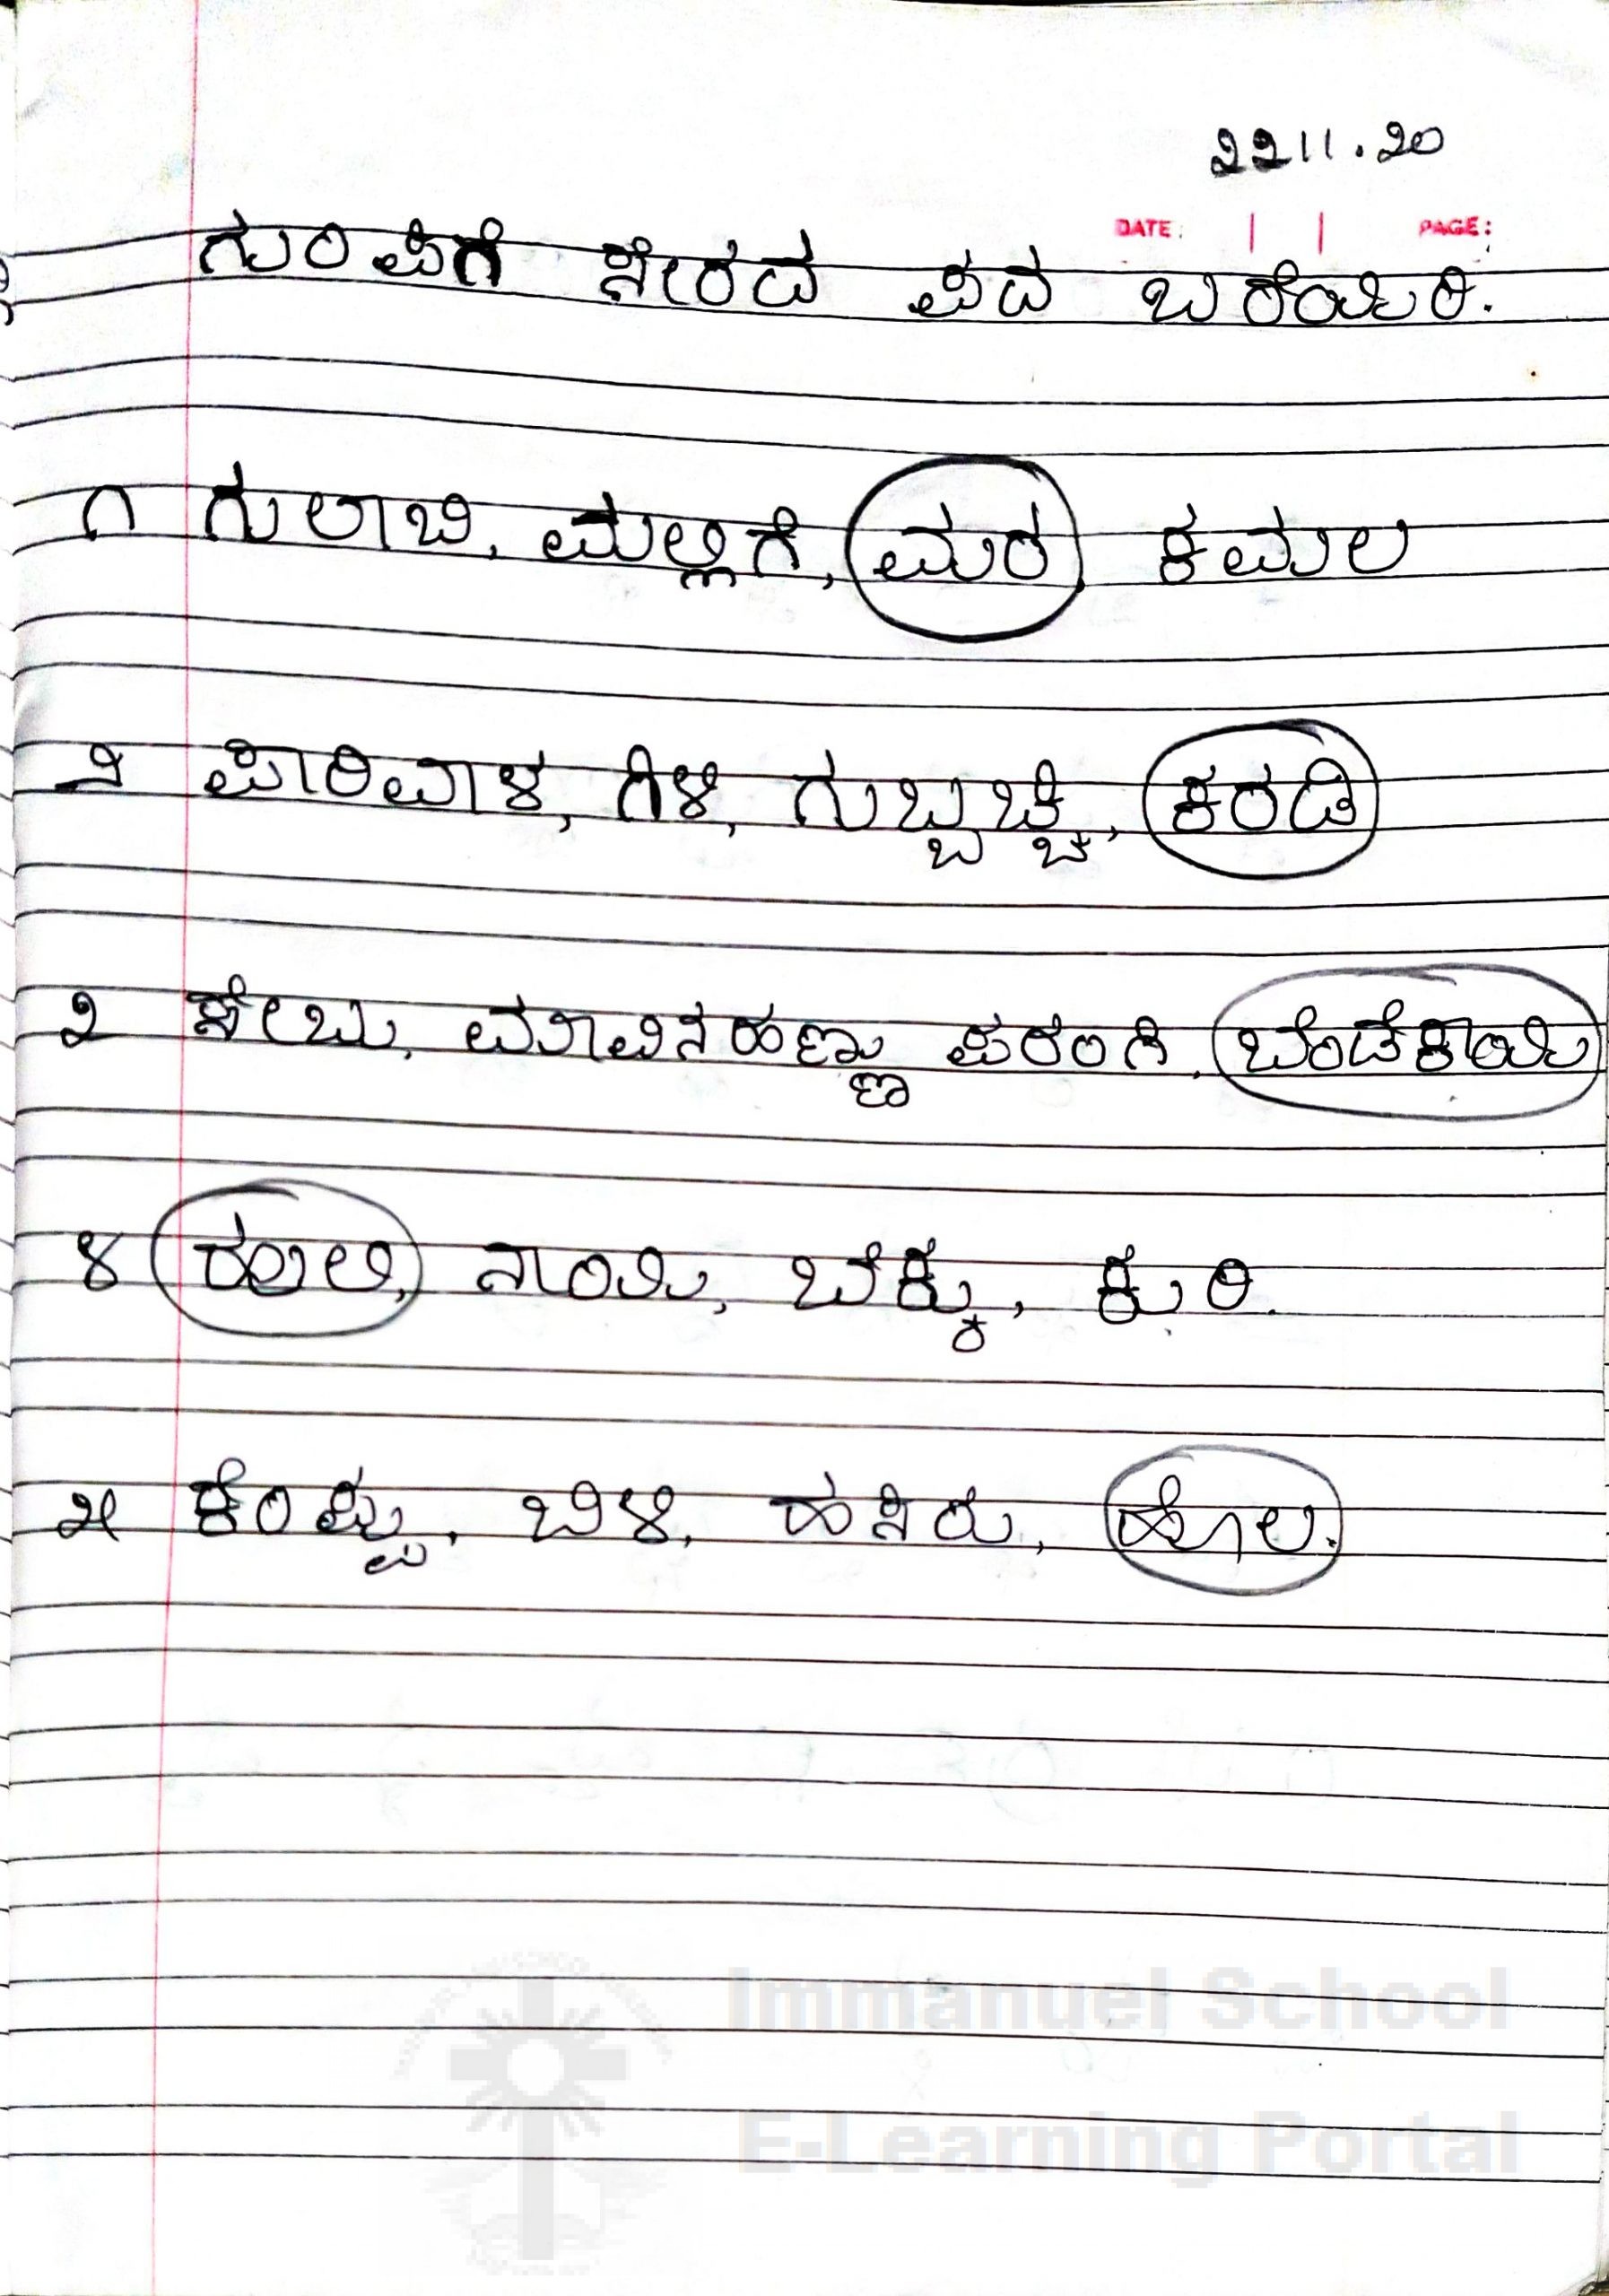 22 11.20
DATE: PAGE:
ಗುಂಪಿಗೆ ಸೇರದ ಪದ ಬರೆಯಿರಿ.
೧ ಗುಲಾಬಿ, ಮಲ್ಲಿಗೆ, ಮರ, ಕಮಲ
೨ ಪಾರಿವಾಳ, ಗಿಳಿ, ಗುಬ್ಬಚ್ಚಿ, ಕರಡಿ
೨ ಸೇಬು, ಮಾವಿನಹಣ್ಣು ಪರಂಗಿ, ಬೆಂಡೆಕಾಯಿ
೪ ಹುಲಿ, ನಾಯಿ, ಬೆಕ್ಕು, ಕುರಿ.
೫ ಕೆಂಪ್ಪು, ಬಿಳಿ, ಹಸಿರು, ಹೊಲ.
Immanuel School
E-Learning Portal